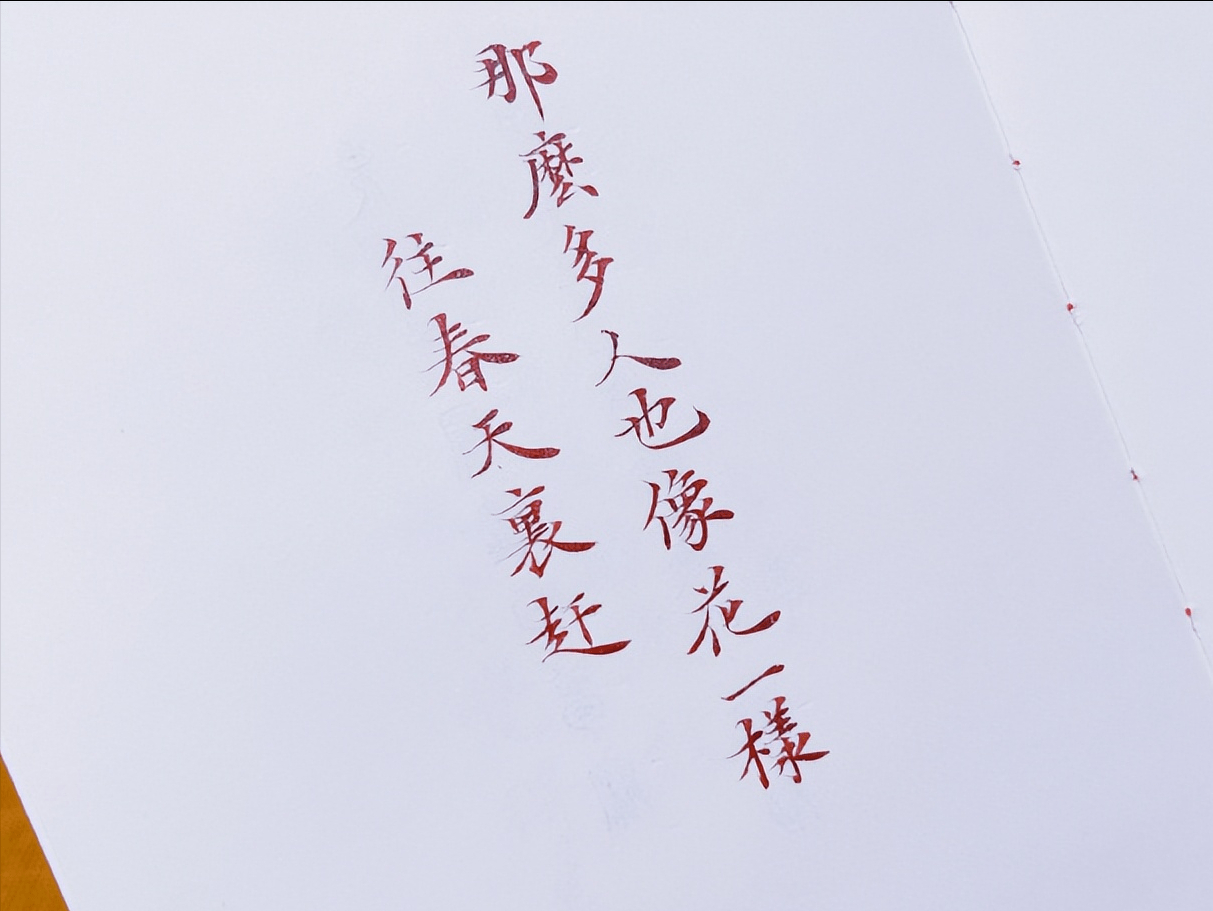 那麼多人也像花一樣
往春天裏赶